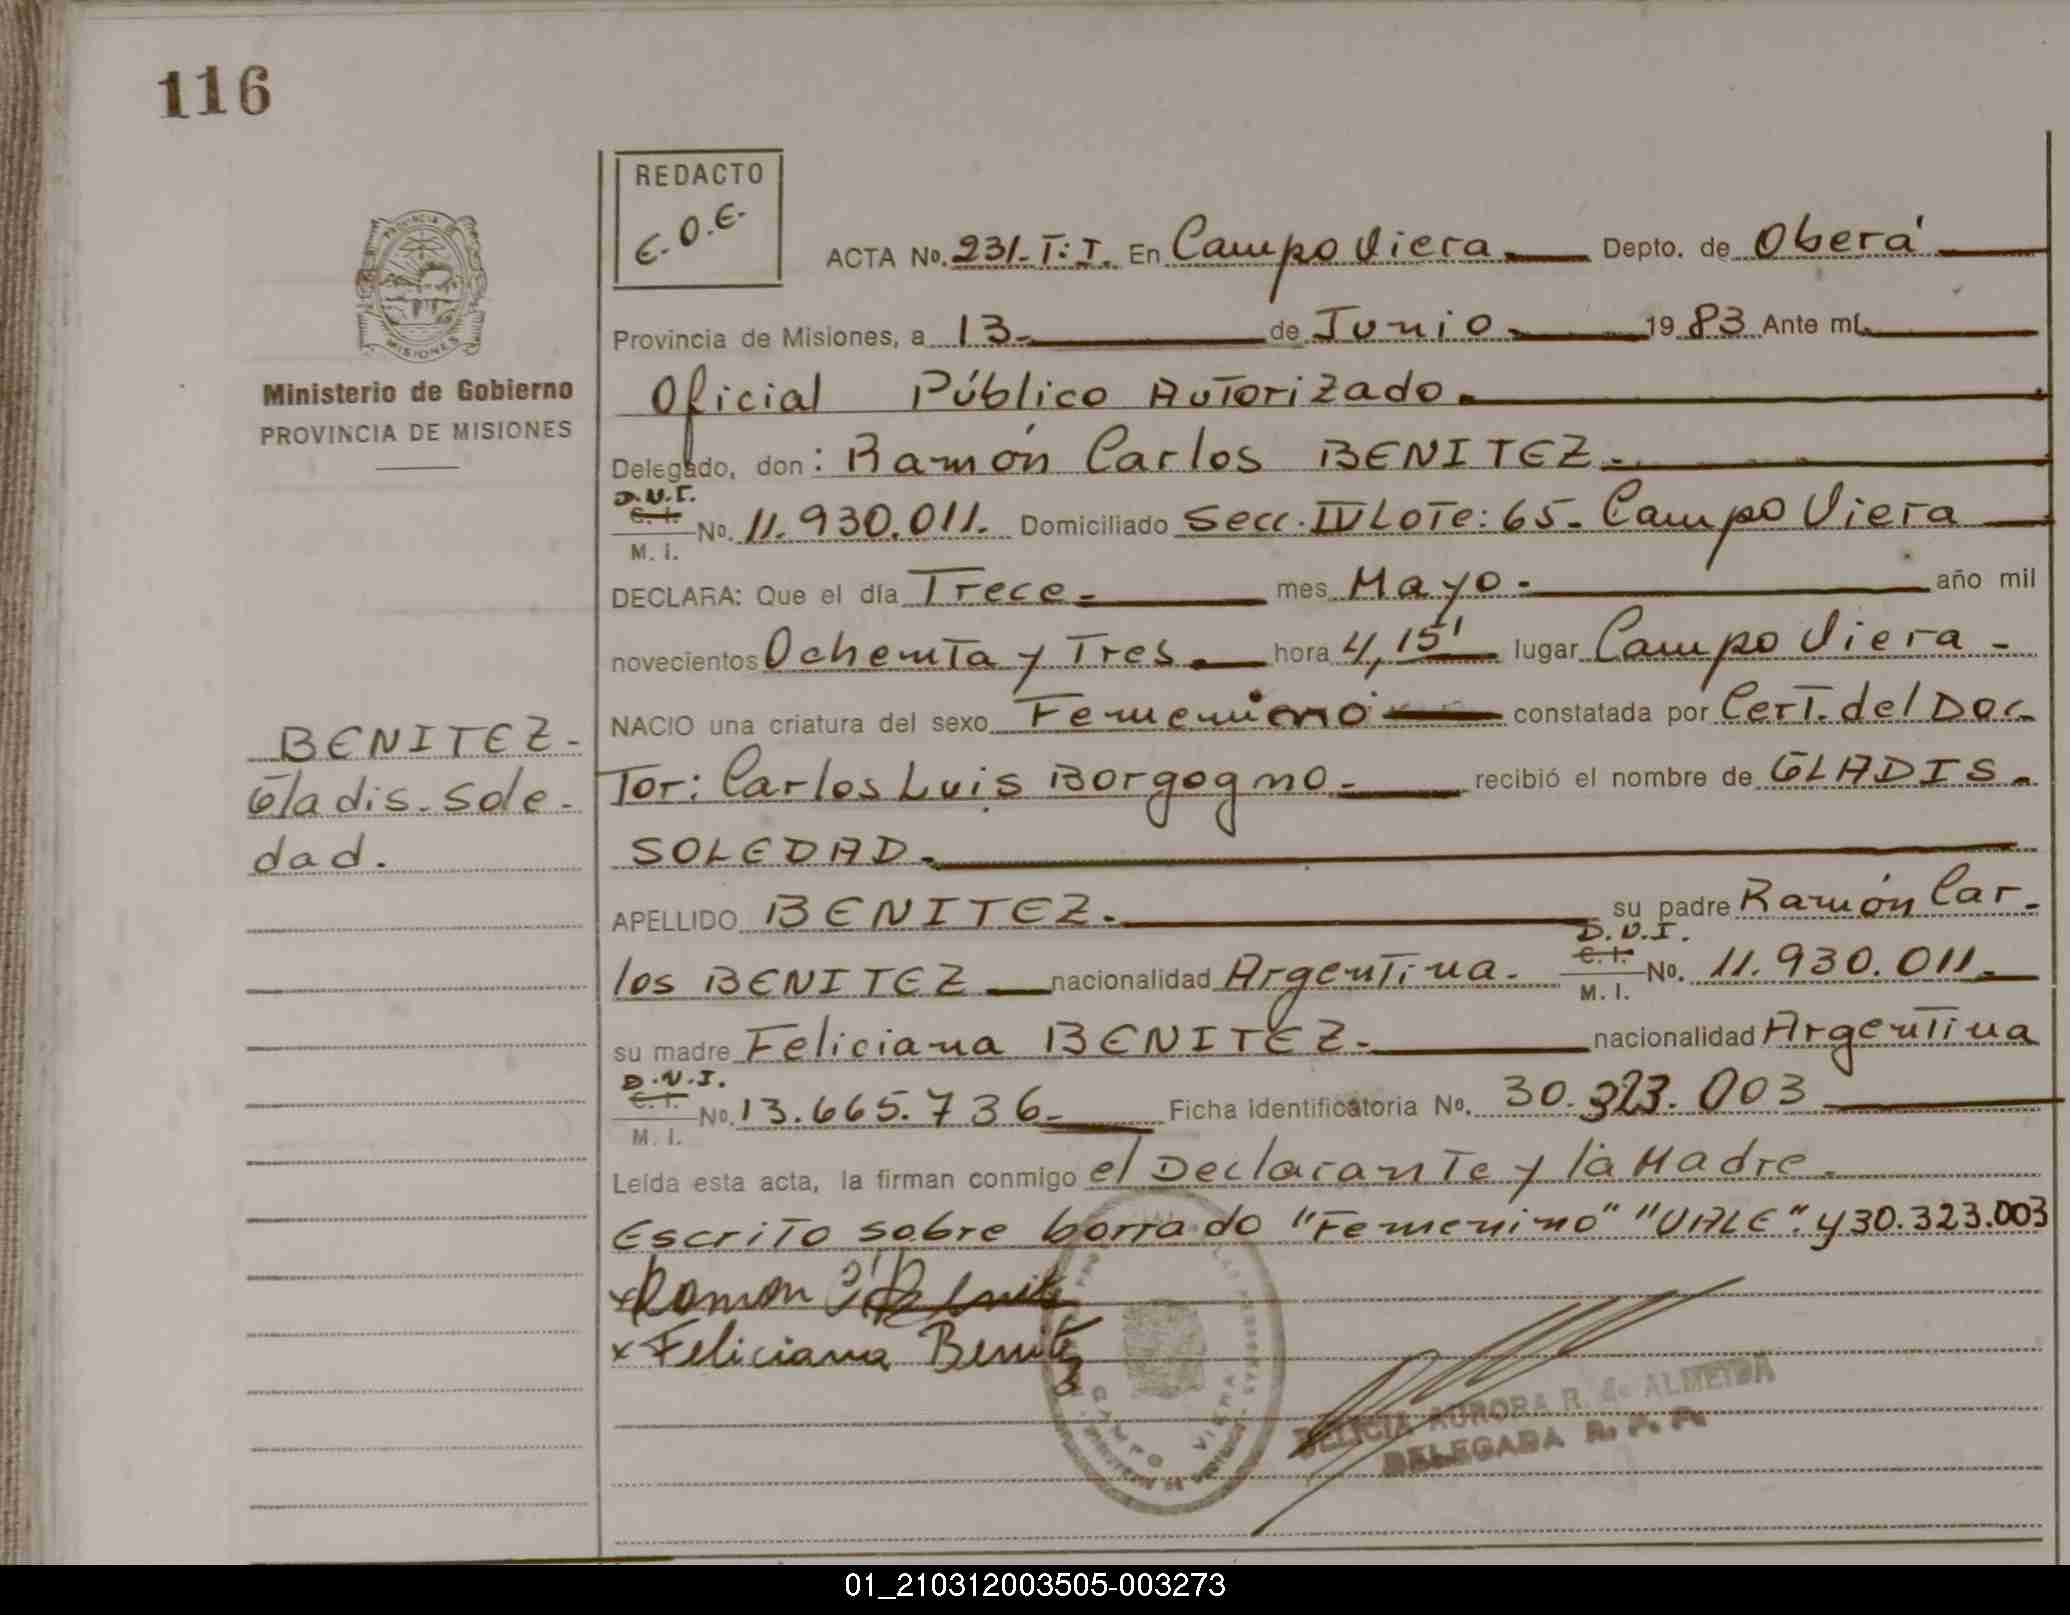 116
REDACTO
E.O.E.
ACTA No. 231-T:I. En Campo Viera. Depto. de Oberá
PROVINCIA
MISIONES
Provincia de Misiones, a 13. de Junio. 1983 Ante mí.
Ministerio de Gobierno
PROVINCIA DE MISIONES
Oficial Público Autorizado.
Delegado, don: Ramón Carlos BENITEZ.
D.N.I.
C. I.
M. I.
No. 11.930.011. Domiciliado Secc. IV Lote: 65. Campo Viera
DECLARA: Que el día Trece. mes Mayo. año mil
novecientos Ochenta y Tres. hora 4,15' lugar Campo Viera.
NACIO una criatura del sexo Femenino constatada por Cert. del Doc
BENITEZ.
Gladis. Sole-
dad.
Tor: Carlos Luis Borgogno. recibió el nombre de GLADIS.
SOLEDAD.
APELLIDO BENITEZ. su padre Ramón Car-
los BENITEZ nacionalidad Argentina. D.N.I. C. I. M. I. No. 11.930.011.
su madre Feliciana BENITEZ. nacionalidad Argentina
D.N.I.
C. I.
M. I.
No. 13.665.736. Ficha identificatoria No. 30.323.003
Leída esta acta, la firman conmigo el Declarante y la Madre.
Escrito sobre borrado "Femenino" "VALE". y 30.323.003
x Ramon
x Feliciana Benitez
CAMPO VIERA
DELICIA AURORA R. de ALMEIDA
DELEGADA R. P. P.
01_210312003505-003273